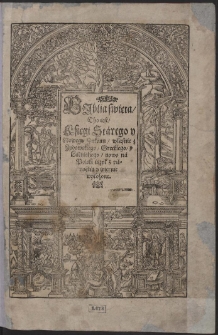 Biblia święta/
Tho iest/
Księgi Stárego y
Nowego Zakonu/ właśnie z
Żydowskiego/ Greckiego/ y
Łácińskiego/ nowo ná
Polski ięzyk z pil-
nością y wiernie
wyłożone.